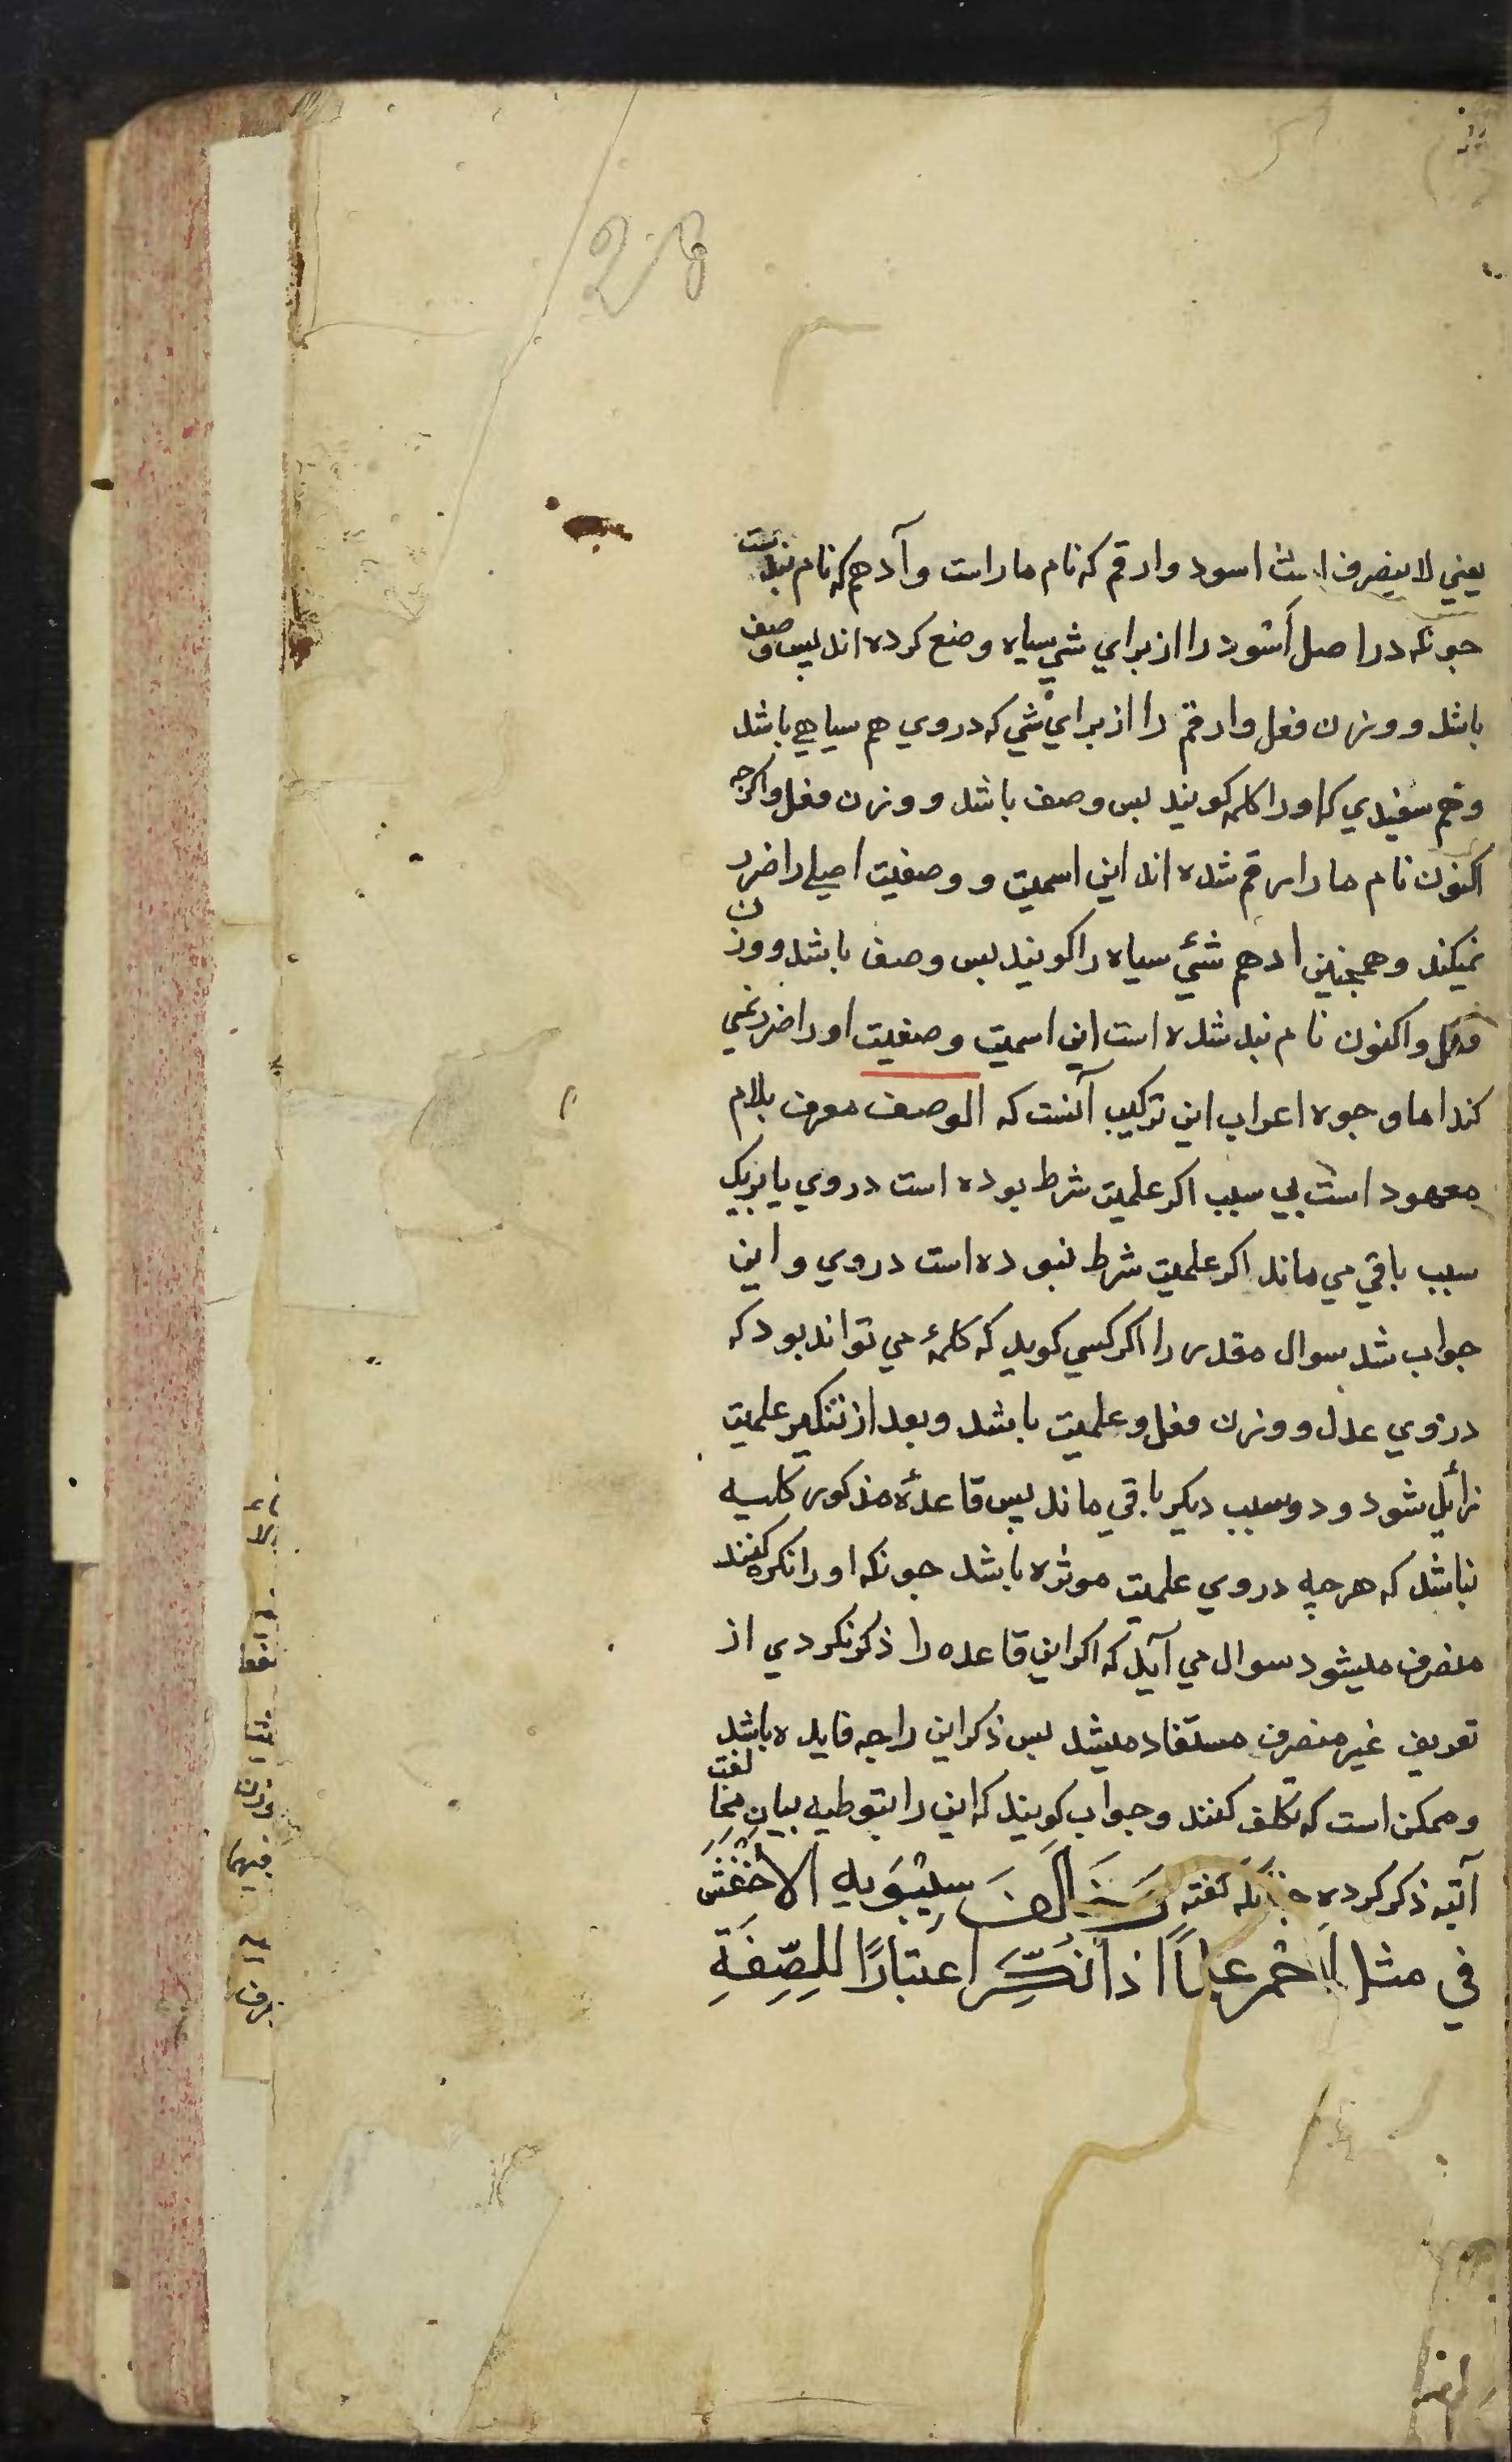 28
يعني لا ينصرف است اسود وارقم كه نام مار است وآدهم كه نام بند است
جونكه در اصل آسود را از براي شي سياه وضع كرده اند پس وصف
باشد و وزن فعل وارقم را از براي شي كه در وي هم سياهي باشد
وهم سفيدي كه او را كلمه كويند پس وصف باشد و وزن فعل واكرچه
اكنون نام مار ارقم شده اند اين اسميت و وصفيت اصلي را ضرر
نميكند وهمچنين ادهم شئ سياه را كويند پس وصف باشد و وزن
فعل واكنون نام بند شده است اين اسميت وصفيت او را ضرر نمي
كند اما وجوه اعراب اين تركيب آنست كه الوصف معرف بلام
معهود است بي سبب اكر علميت شرط بوده است در وي يا بر يك
سبب باقي مي ماند اكر علميت شرط نبوده است در وي و اين
جواب شد سوال مقدر را اكر كسي كويد كه كلمهٔ مي تواند بود كه
در وي عدل و وزن فعل و علميت باشد وبعد از تنكير علميت
زائل شود و دو سبب ديكر باقي ماند پس قاعدۀ مذكور كليه
نباشد كه هرچه در وي علميت موثره باشد جونكه او را نكره كنند
منصرف ميشود سوال مي آيد كه اكر اين قاعده را ذكر نكردي از
تعريف غير منصرف مستفاد ميشد پس ذكر اين را چه فايده باشد
وممكن است كه تكلف كنند وجواب كويند كه اين را بتوطيه بيان مخالفت
آتيه ذكر كرده چنانكه كفته وَخَالَفَ سِيْبَوَيهِ الاَخْفَش
في مثل اَحْمر علمًا اذا نُكِّرَ اعتبارًا للصِّفَةِ